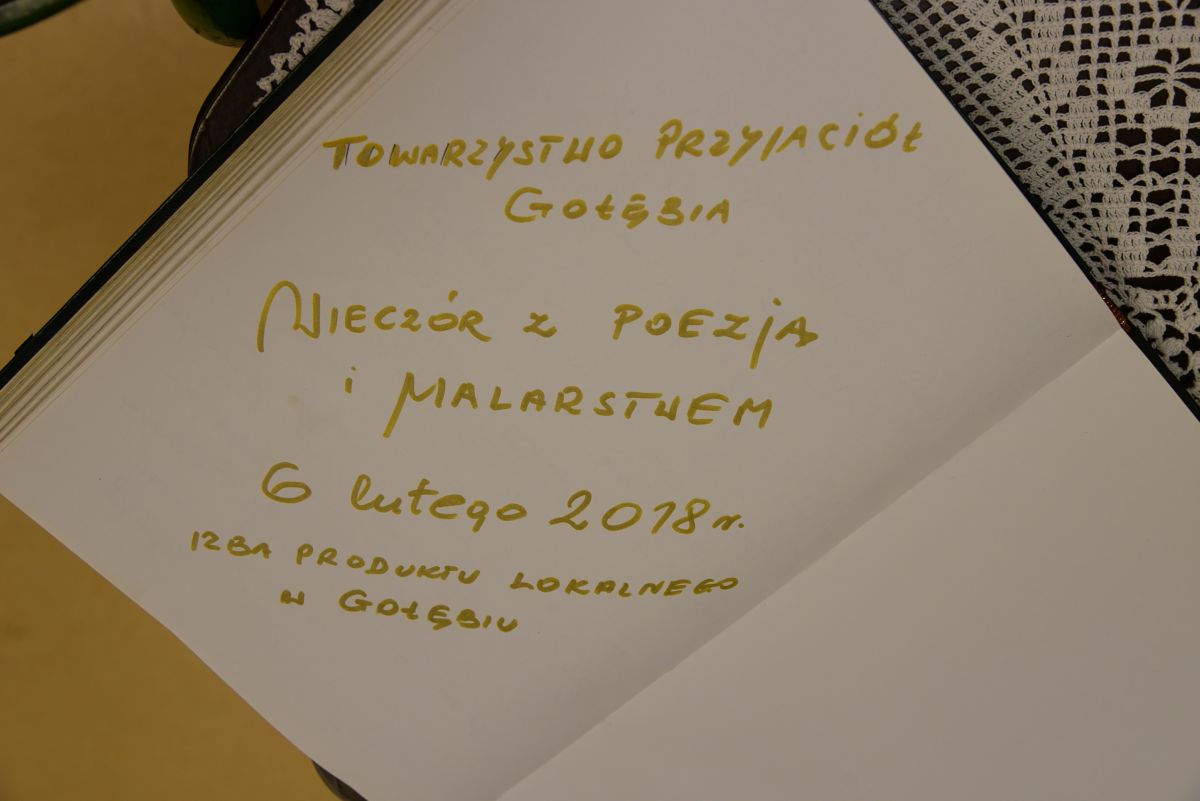 TOWARZYSTWO PRZYJACIÓŁ
GOŁĘBIA
WIECZÓR Z POEZJĄ
i MALARSTWEM
6 lutego 2018 r.
IZBA PRODUKTU LOKALNEGO
W GOŁĘBIU